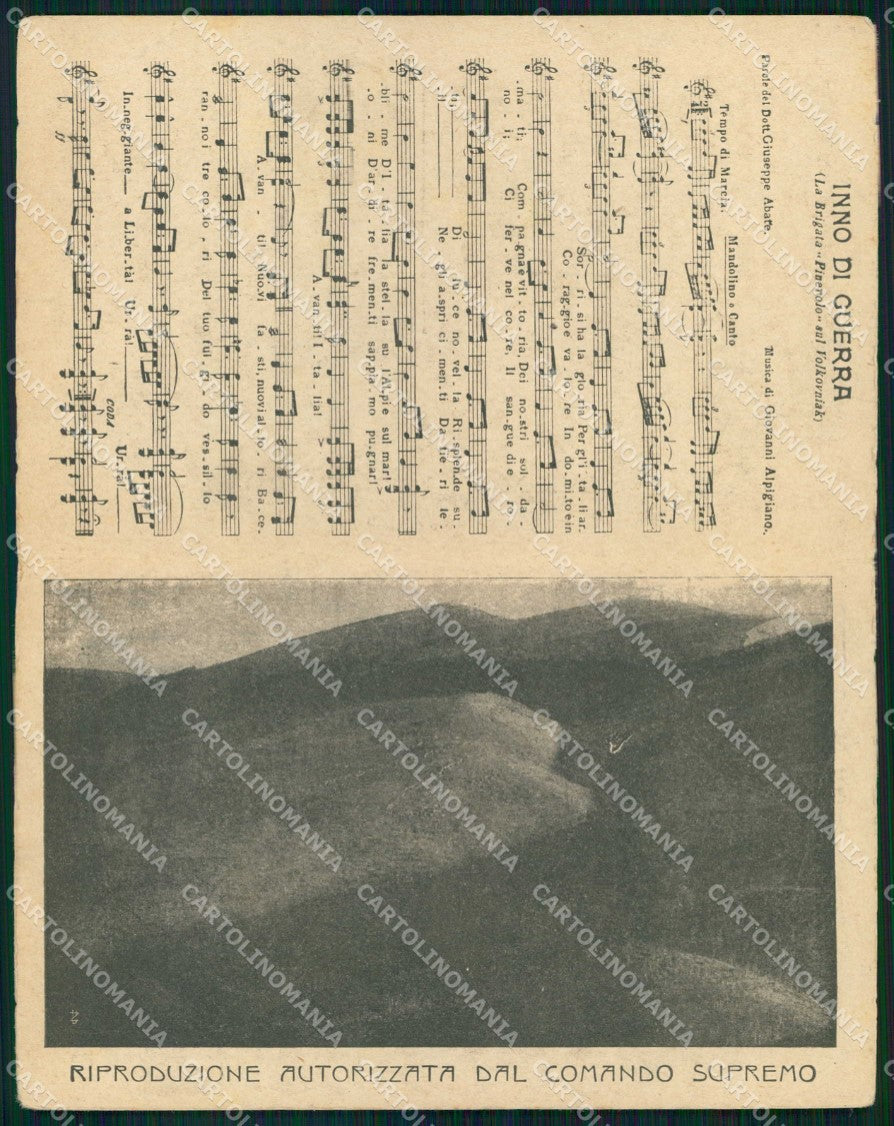 INNO DI GUERRA
(La Brigata "Pinerolo" sul Volkovniak)
Parole del Dott. Giuseppe Abate. Musica di Giovanni Alpigiano.
Tempo di Marcia. Mandolino o Canto
Sor - ri - si ha la glo - ria Per gl'i - ta - li ar -
Co - rag - gio e va - lo - re In do - mi - to è in
- ma - ti; Com - pa - gna è vit - to - ria, Dei no - stri sol - da -
no - i; Ci fer - ve nel co - re, Il san - gue di e - ro -
- ti; Di lu - ce no - vel - la Ri - splen - de su -
- i! Ne - gli a - spri ci - men - ti Da fie - ri le -
- bli - me D'I - ta - lia la stel - la su l'Alpi e sul mar!
- o - ni D'ar - di - re fre - men - ti sap - pia - mo pu - gnar!
A - van - ti! I - ta - lia!
A - van - ti! Nuo - vi fa - sti, nuovi al - lo - ri Ba - ce -
ran - no i tre co - lo - ri Del tuo ful - gi - do ves - sil - lo
In - neg - giante a Li - ber - tà! Ur - rà! Ur - rà!
CODA
RIPRODUZIONE AUTORIZZATA DAL COMANDO SUPREMO
CARTOLINOMANIA